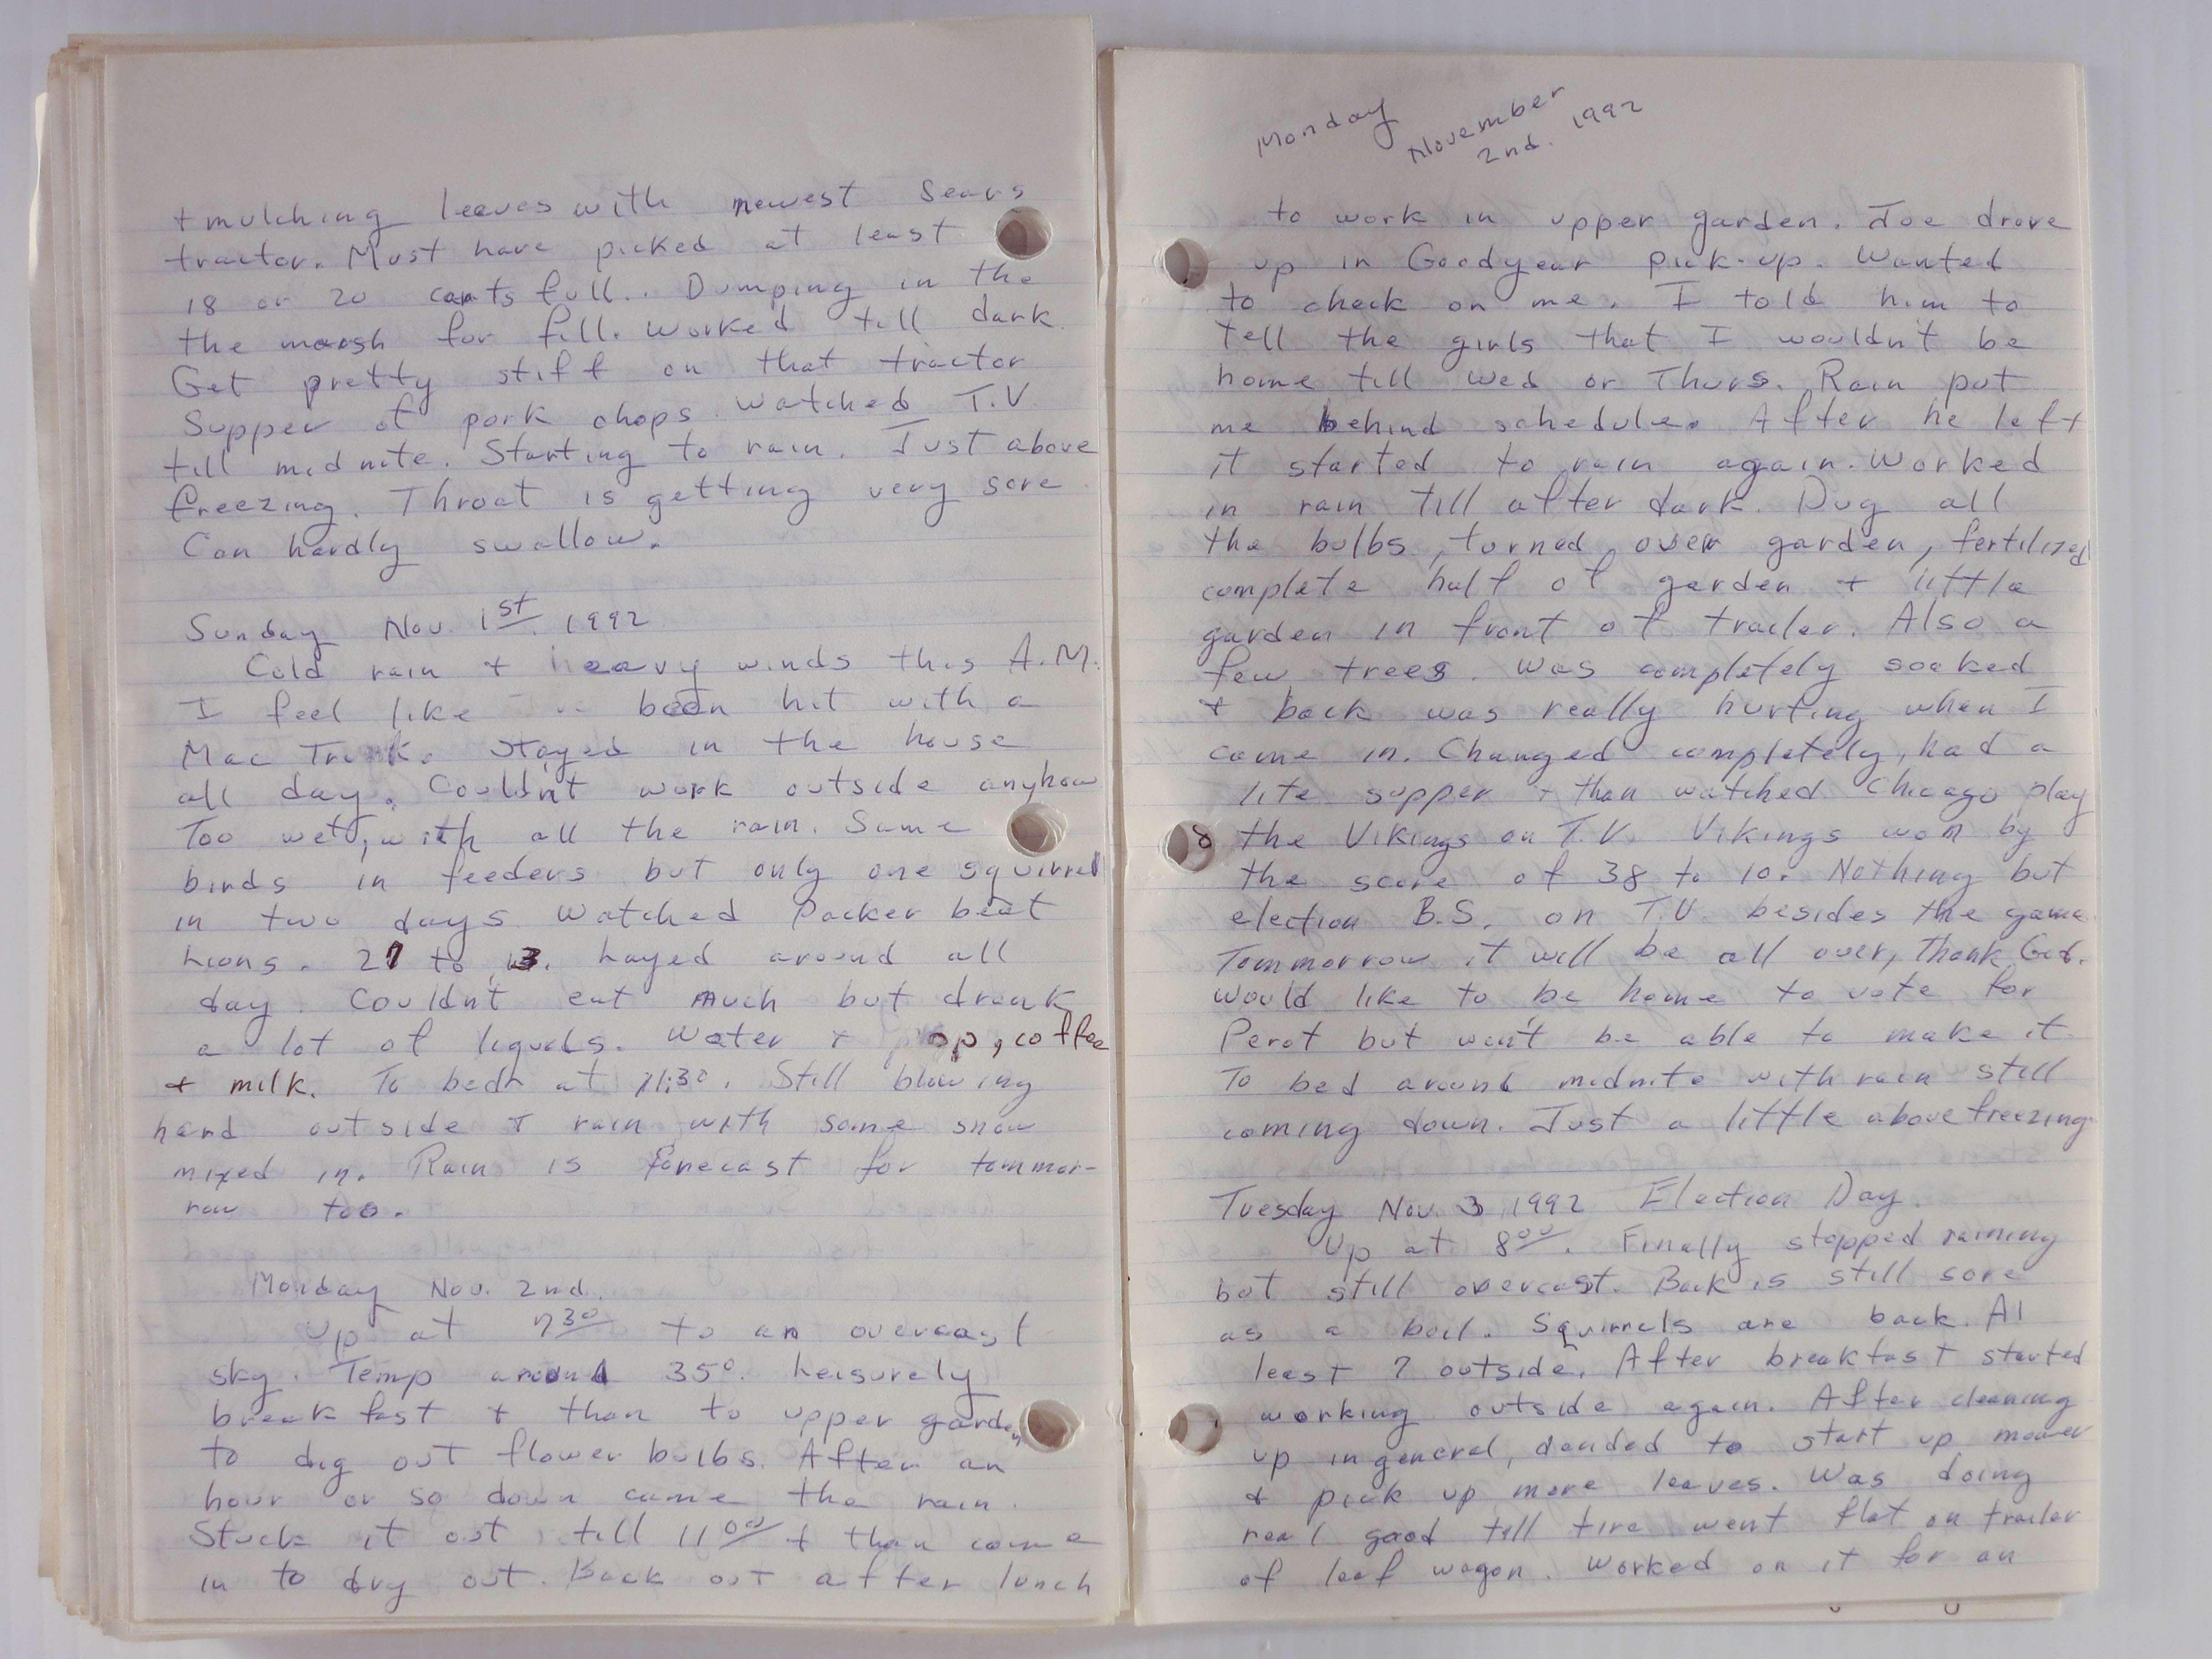 + mulching leaves with newest Sears
tractor. Must have picked at least
18 or 20 carts full.. Dumping in the
the marsh for fill. Worked till dark.
Get pretty stiff on that tractor
Supper of pork chops. Watched T.V.
till midnite. Starting to rain. Just above
freezing. Throat is getting very sore.
Can hardly swallow.
Sunday Nov. 1st. 1992
Cold rain + heavy winds this A.M.
I feel like been hit with a
Mac Truck. Stayed in the house
all day. Couldn't work outside anyhow
Too wet, with all the rain. Some
birds in feeders but only one squirrel
in two days. Watched Packer beat
Lions. 27 to 13. Layed around all
day. Couldn't eat much but drank
a lot of liquids. Water + pop, coffee
+ milk. To bed at 11:30. Still blowing
hard outside + rain with some snow
mixed in. Rain is forecast for tommor-
row too.
Monday Nov. 2nd.
Up at 7 30 to an overcast
sky. Temp around 35°. Leisurely
breakfast + than to upper garden
to dig out flower bulbs. After an
hour or so down came the rain.
Stuck it out till 11 00 + than come
in to dry out. Back out after lunch
Monday November
2nd. 1992
to work in upper garden. Joe drove
up in Goodyear pick-up. Wanted
to check on me. I told him to
tell the girls that I wouldn't be
home till Wed or Thurs. Rain put
me behind schedule. After he left
it started to rain again. Worked
in rain till after dark. Dug all
the bulbs, turned over garden, fertilized
complete half of garden + little
garden in front of trailer. Also a
few trees. Was completely soaked
+ back was really hurting when I
came in. Changed completely, had a
lite supper + than watched Chicago play
the Vikings on T.V. Vikings won by
the score of 38 to 10. Nothing but
election B.S. on T.V. besides the game.
Tommorrow it will be all over, Thank God.
Would like to be home to vote for
Perot but won't be able to make it.
To bed around midnite with rain still
coming down. Just a little above freezing.
Tuesday Nov. 3 1992 Election Day.
Up at 8 00. Finally stopped raining
but still overcast. Back is still sore
as a boil. Squirrels are back. At
least 7 outside. After breakfast started
working outside again. After cleaning
up in general, decided to start up mower
+ pick up more leaves. Was doing
real good till tire went flat on trailer
of leaf wagon. Worked on it for an